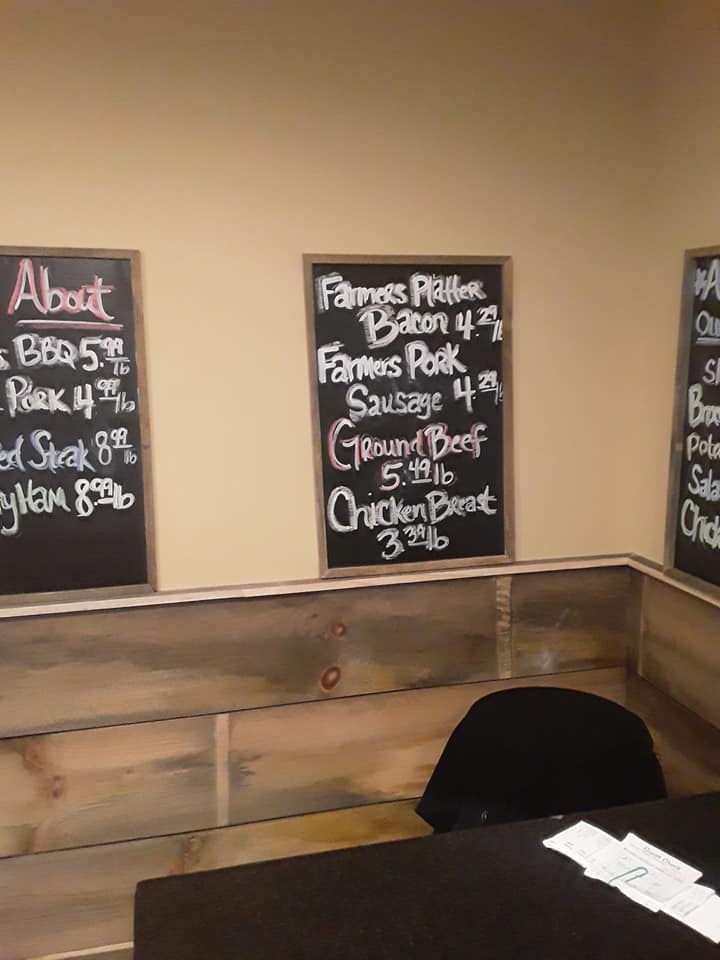 About
s BBQ 5.99 lb
Pork 4.99 lb
ed Steak 8.99 lb
y Ham 8.99 lb
Farmers Platter
Bacon 4.29 lb
Farmers Pork
Sausage 4.29 lb
Ground Beef
5.49 lb
Chicken Breast
3.39 lb
*A
Qu
S
Pota
Sala
Chick